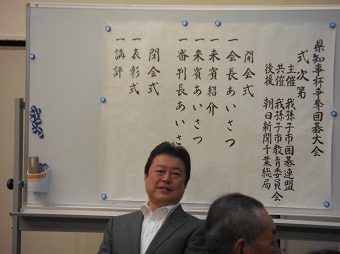 県知事杯争奪囲碁大会
式次第
主催 我孫子市囲碁連盟
共催 我孫子市教育委員会
後援 朝日新聞千葉総局
開会式
一会長あいさつ
一来賓紹介
一来賓あいさつ
一審判長あいさ
閉会式
一表彰式
一講評